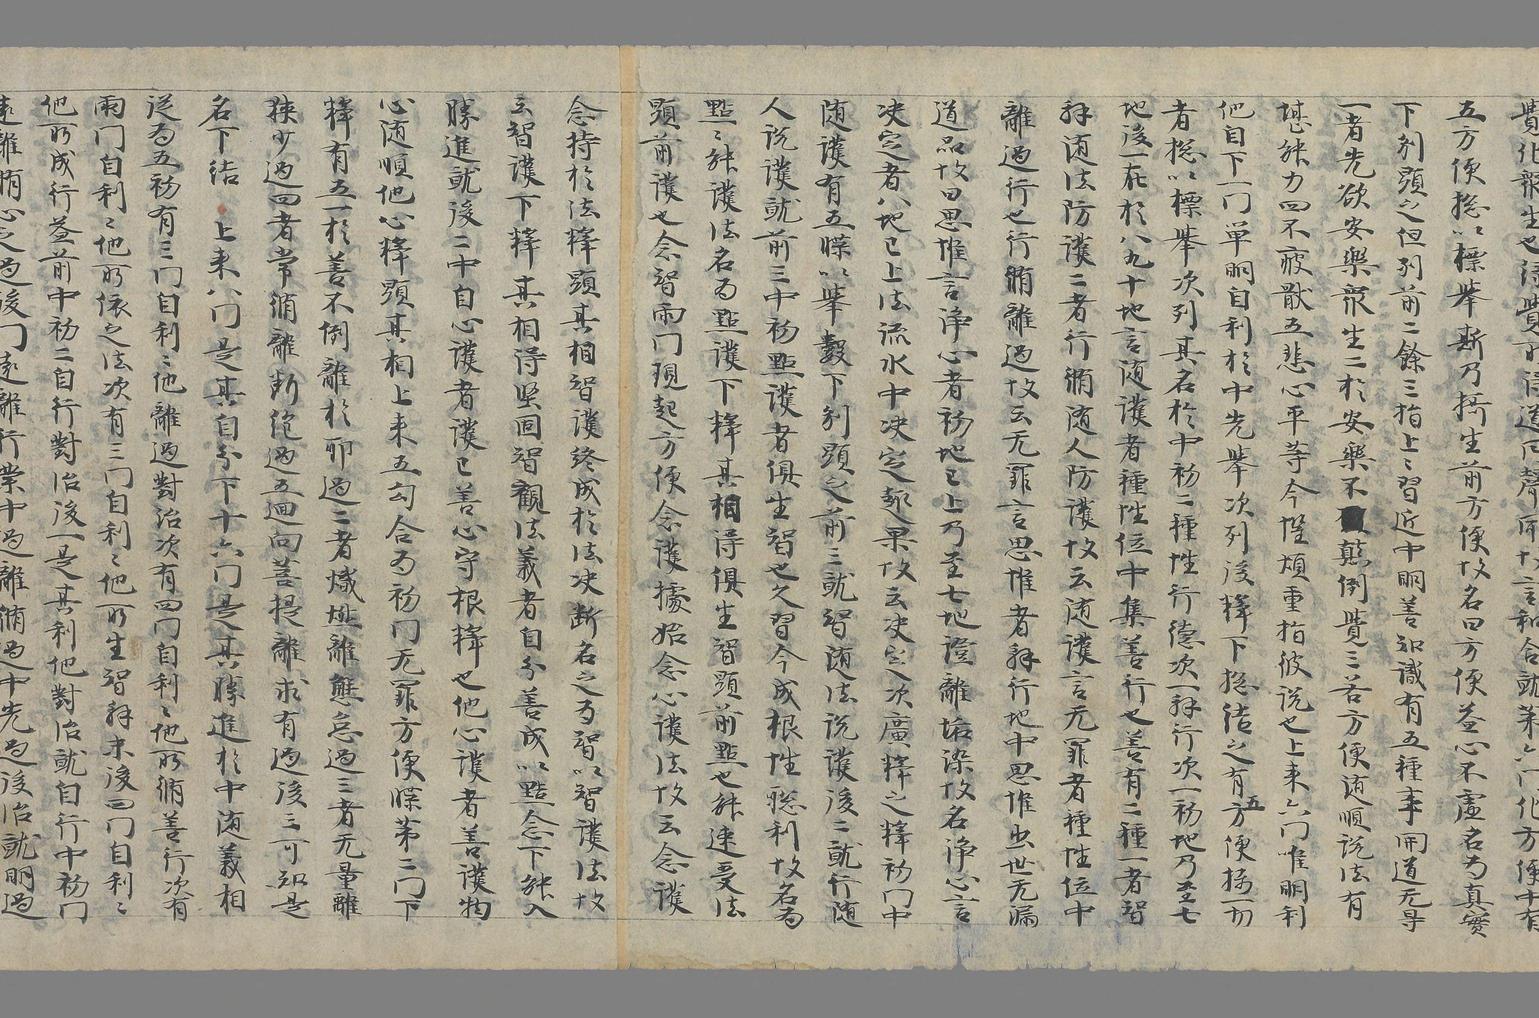 五方便揔以標舉斯乃揩生前方便故名曰方便益心不虛名為真實
下別顯之但列前二餘三指上〻習近中明善知識有五種事開道无㝵
一者先欲安樂衆生二於安樂不顛倒覺三若方便随順說法有
堪能力四不疲猒五悲心平等今惶煩重指彼說也上来六門唯明利
他自下一門單明自利於中先舉次列後釋下揔結之有五方便攝一切
者揔以標舉次列其名於中初二種性行德次一解行次一初地乃至七
地後一在於八九十地言随護者種性位中集善行也善有二種一者智
解随法防護二者行脩随人防護故云随護言无罪者種性位中
離過行也行脩離過故云无罪言思惟者解行地中思惟出世无漏
道品故曰思惟言淨心者初地已上乃至七地證離垢染故名淨心言
决定者八地已上法流水中决定趣果故云决定次廣釋之釋初門中
随護有五牒以舉數下別顯之前三就智随法說護後二就行随
人說護就前三中初點護者俱生智也久習今成根性聡利故名為
點〻能護法名為點護下釋其相得俱生智顯前點也能速受法
顯前護也念智兩門現起方便念護據始念心護法故云念護
念持於法釋顯其相智護終成於法决斷名之為智以智護法故
云智護下釋其相得堅固智觀法義者自分善成以點念下能入
勝進就後二中自心護者護已善心守根釋也他心護者善護物
心随順他心釋顯其相上来五句合為初門无罪方便牒第二門下
釋有五一於善不倒離於邪過二者熾㷔離懈怠過三者无量離
狹少過四者常脩離斷絕過五迴向菩提離求有過後三可知是
名下結上来八門是其自分下十六門是其勝進於中随義相
從為五初有三門自利〻他離過對治次有四門自利〻他所脩善行次有
兩門自利〻他所依之法次有三門自利〻他所生智解末後四門自利〻
他所成行益前中初二自行對治後一是其利他對治就自行中初門
遠離脩心之過後門遠離行業中過離脩過中先過後治就明過